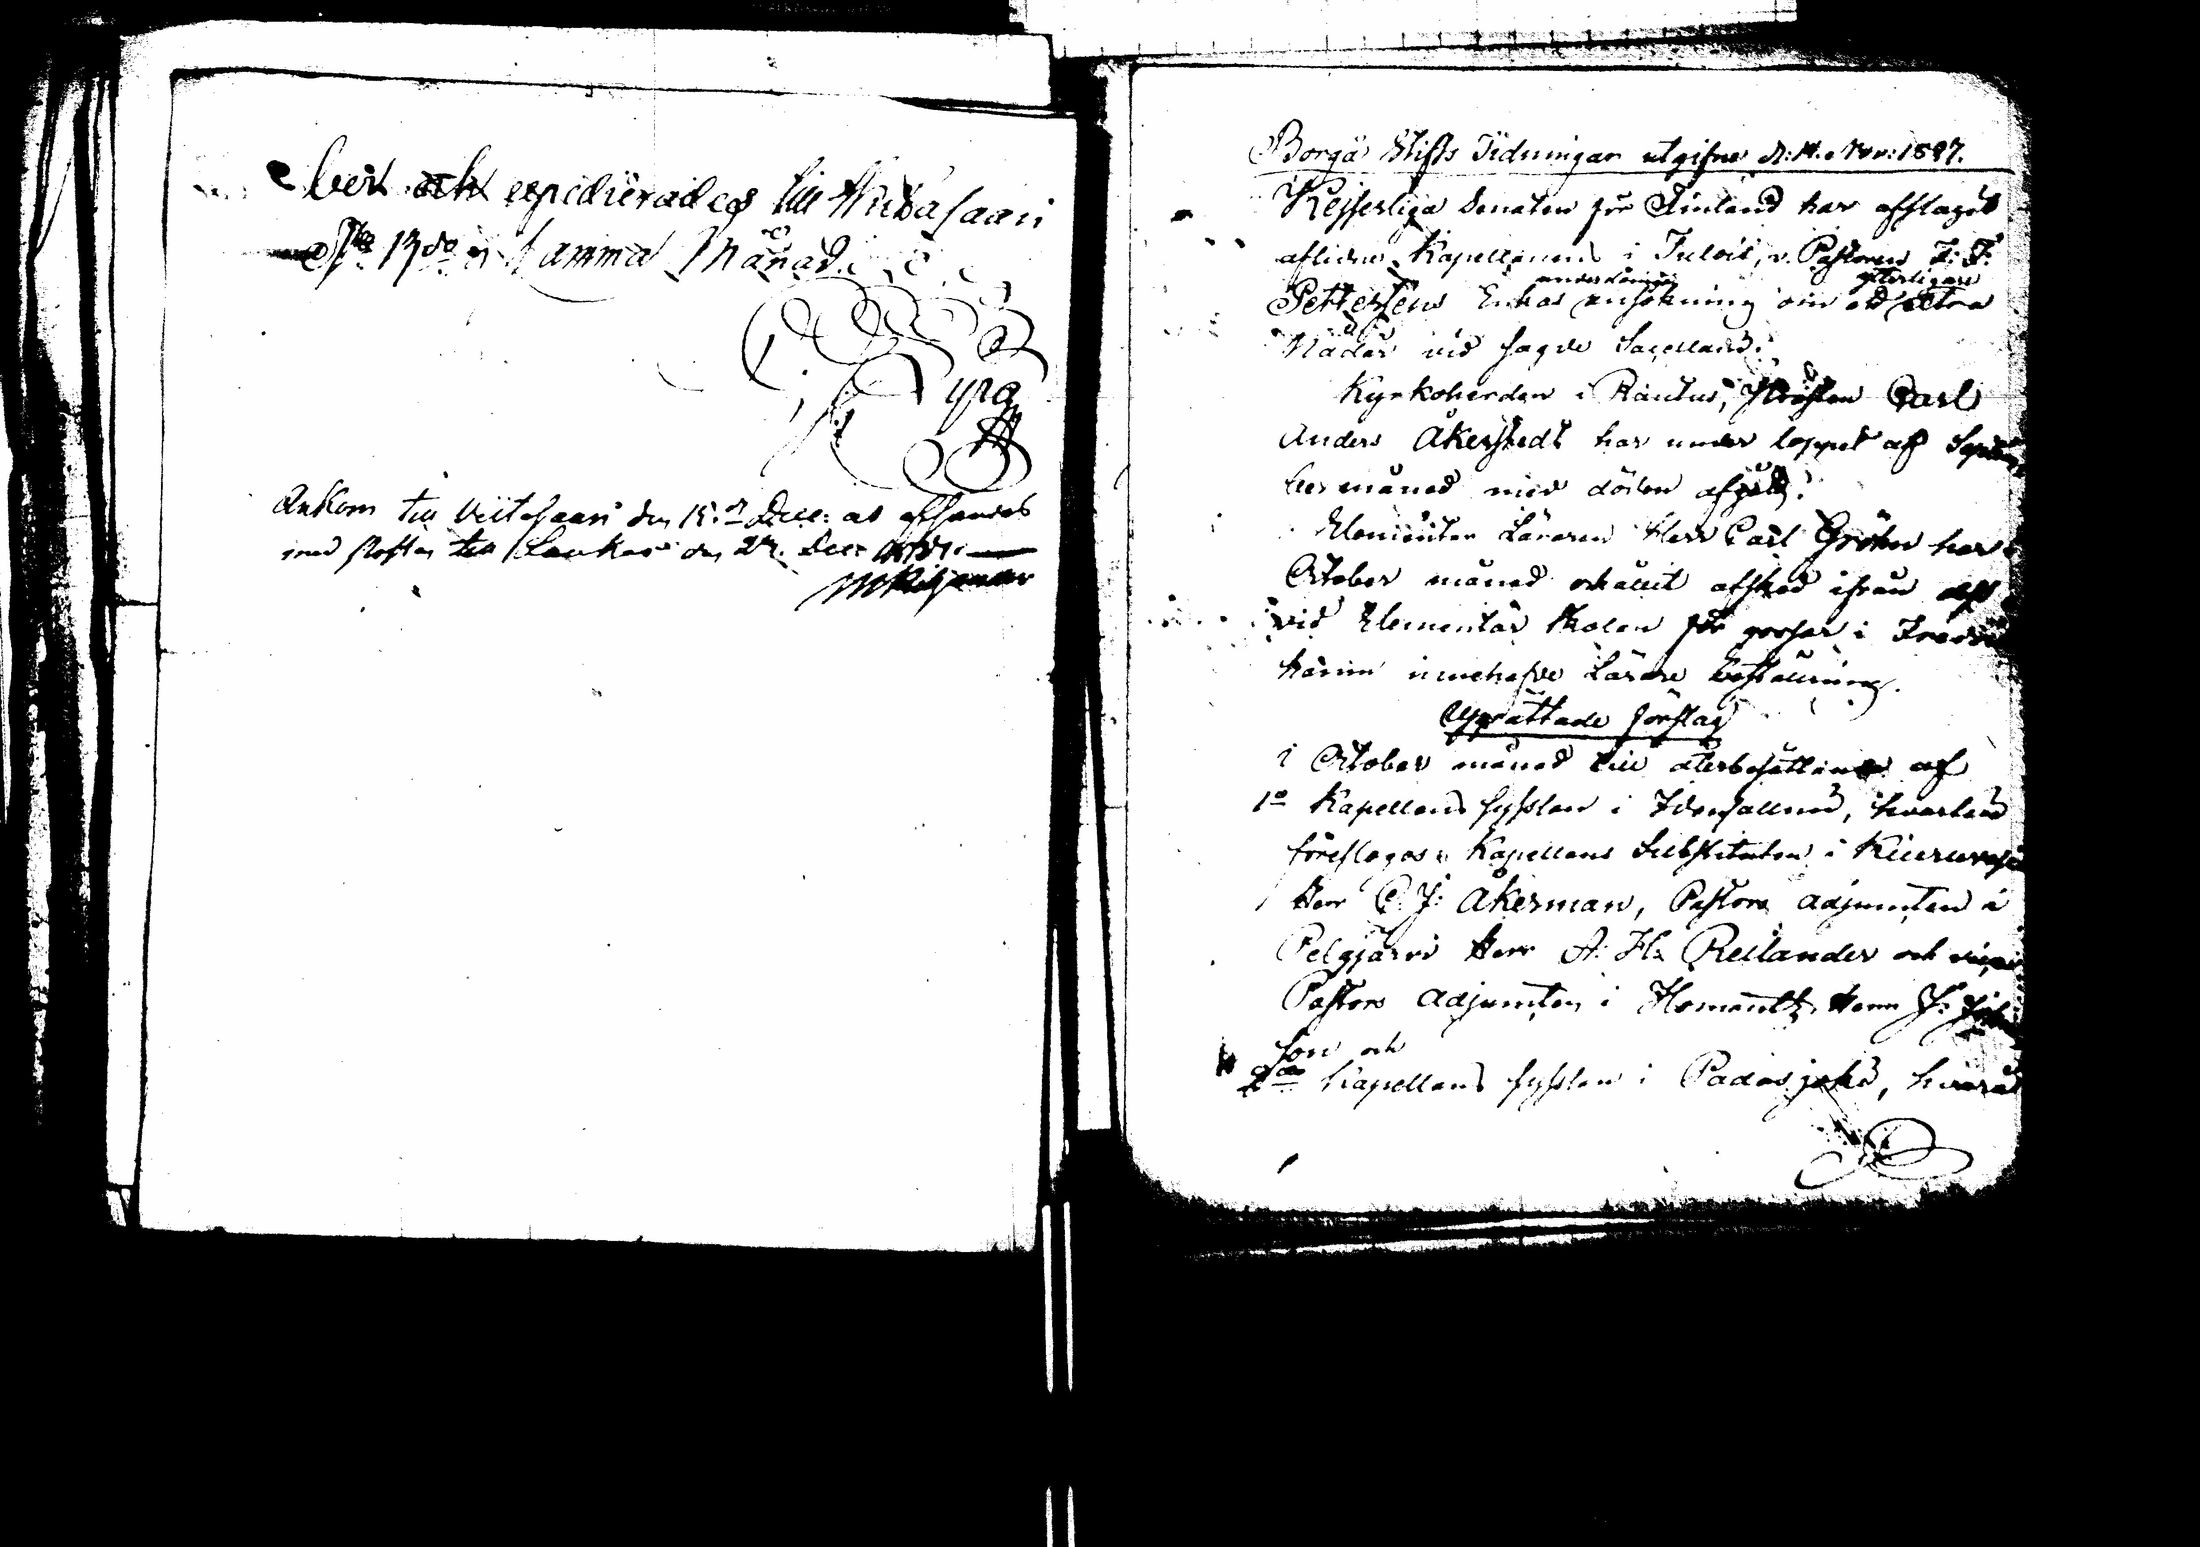 ber och expedierades till
13de i samma Månad
Ankom till Viitasaari den 15de Dec: at afsändes
med posten till Laukas den 27. Dec:
Borgå Stifts Tidningar utgifne d: 14. Nov: 1847.
Kejserliga Senaten för Finland har afslagit
aflidne Kapellanens i Tulois, v. Pastoren J: F:
underdåniga ytterligare
Petterséns Enkas ansökning om extra
Nådår vid sagde Sacelland.
Kyrkoherden i Rautus, Prosten Carl
Anders Åkerstedt har under loppet af Septem
ber månad med döden afgått.
Elementar Läraren Herr Carl Gröhn har i
October månad erhållit afsked ifrån
vid Elementar Skolan för gossar i Fredriks
hamn innehafde Lärare beställning.
Upprättade förslag
i October månad till återbesättande af
1o Kapellans sysslan i Idensalmi, hvartill
föreslogos: Kapellans Substituten i Kiuruvesi
Herr C. J: Åkerman, Pastors adjuncten i
Pelgjärvi Herr A: H: Reilander och
Pastors Adjuncten i Ilomants Herr J:
son och
2do Kapellans sysslan i Padasjoki,